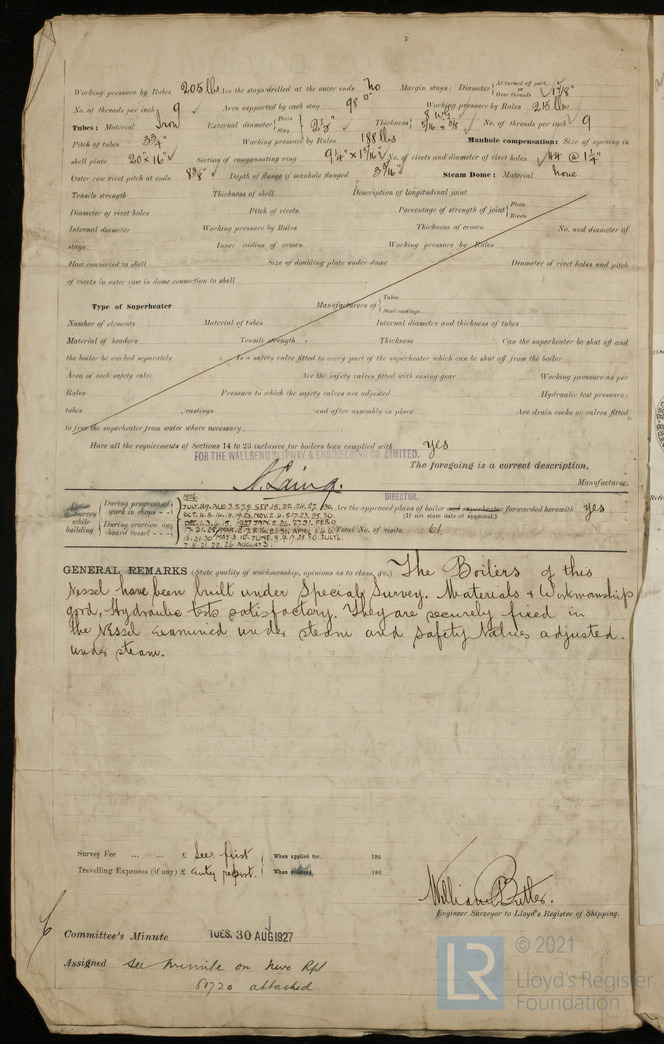 Working pressure by Rules 205 lbs Are the stays drilled at the outer ends No Margin stays: Diameter { At turned off part, or Over threads 1 7/8"
No. of threads per inch 9 Area supported by each stay 98 □" Working pressure by Rules 215 lbs
Tubes: Material Iron External diameter { Plain Stay 2 1/2" Thickness { 8 WG 5/16 + 3/8 No. of threads per inch 9
Pitch of tubes 3 3/4" Working pressure by Rules 188 lbs Manhole compensation: Size of opening in
shell plate 20" x 16" Section of compensating ring No. of rivets and diameter of rivet holes 44 @ 1 1/4"
Outer row rivet pitch at ends 8 3/8" Depth of flange if manhole flanged 3 5/16" Steam Dome: Material None
Tensile strength Thickness of shell Description of longitudinal joint
Diameter of rivet holes Pitch of rivets Percentage of strength of joint { Plate Rivets
Internal diameter Working pressure by Rules Thickness of crown No. and diameter of
stays Inner radius of crown Working pressure by Rules
How connected to shell Size of doubling plate under dome Diameter of rivet holes and pitch
of rivets in outer row in dome connection to shell
Type of Superheater Manufacturers of { Tubes Steel castings
Number of elements Material of tubes Internal diameter and thickness of tubes
Material of headers Tensile strength Thickness Can the superheater be shut off and
the boiler be worked separately Is a safety valve fitted to every part of the superheater which can be shut off from the boiler
Area of each safety valve Are the safety valves fitted with easing gear Working pressure as per
Rules Pressure to which the safety valves are adjusted Hydraulic test pressure:
tubes , castings and after assembly in place Are drain cocks or valves fitted
to free the superheater from water where necessary
Have all the requirements of Sections 14 to 23 inclusive for boilers been complied with yes
FOR THE WALLSEND SLIPWAY & ENGINEERING CO. LIMITED.
The foregoing is a correct description,
N. Laing. Manufacturer.
DIRECTOR.
Dates of Survey while building { During progress of work in shops - - } { During erection on board vessel - - - }
1926
JULY. 29. AUG. 3. 5. 7. 9. SEP. 15. 22. 24. 27. 30.
Are the approved plans of boiler and superheater forwarded herewith yes
(If not state date of approval.)
Total No. of visits 61
GENERAL REMARKS (State quality of workmanship, opinions as to class, &c.) The Boilers of this
Vessel have been built under Special Survey. Materials & Workmanship
good, Hydraulic tests satisfactory. They are securely fixed in
the Vessel examined under steam and safety Valves adjusted
under steam.
Survey Fee ... ... £ See first When applied for, 192
Travelling Expenses (if any) £ entry report. When received, 192
William Butler.
Engineer Surveyor to Lloyd's Register of Shipping.
Committee's Minute TUES. 30 AUG 1927
Assigned See minute on
attached
LR © 2021
Lloyd's Register
Foundation